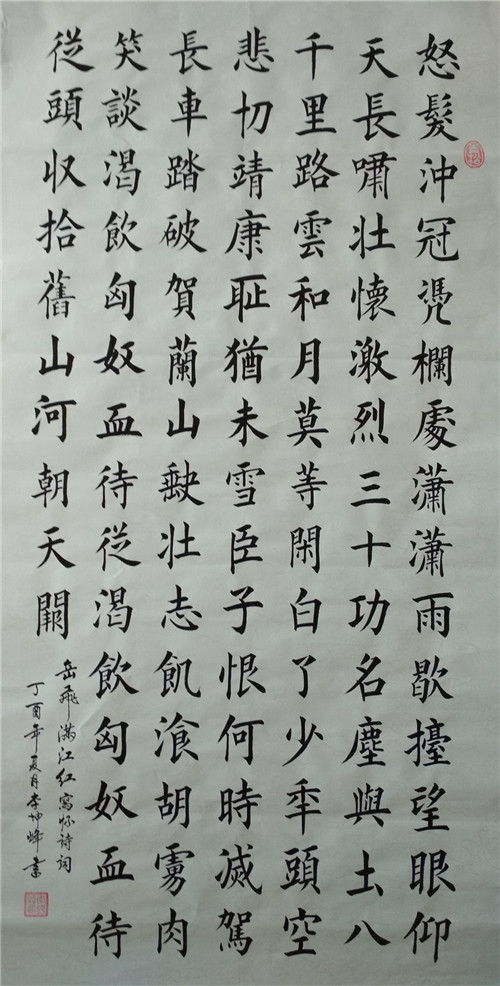 怒髮沖冠凴欄處瀟瀟雨歇擡望眼仰
天長嘯壯懷激烈三十功名塵與土八
千里路雲和月莫等閑白了少年頭空
悲切靖康耻猶未雪臣子恨何時滅駕
長車踏破賀蘭山缺壯志飢飡胡虜肉
笑談渴飲匈奴血待從渴飲匈奴血待
從頭收拾舊山河朝天闕
岳飛满江红寫怀诗词
丁酉年夏月李坤峰書